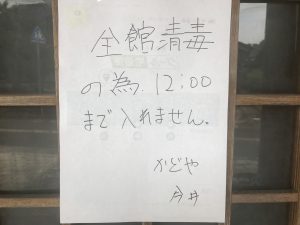 全館清毒
の為.12:00
まで入れません。
かどや
今井